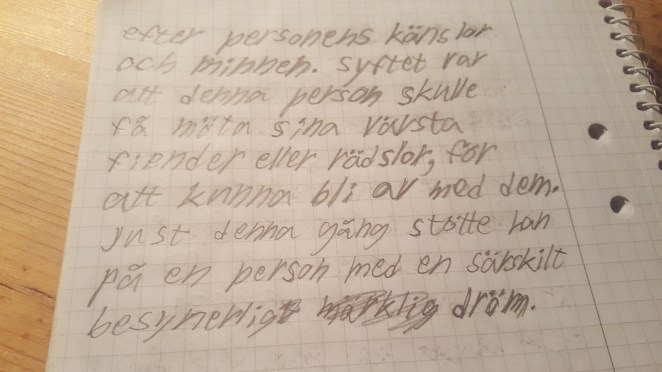 efter personens känslor
och minnen. Syftet var
att denna person skulle
få möta sina värsta
fiender eller rädslor, för
att kunna bli av med dem.
Just denna gång stötte han
på en person med en särskilt
besynerligt märklig dröm.